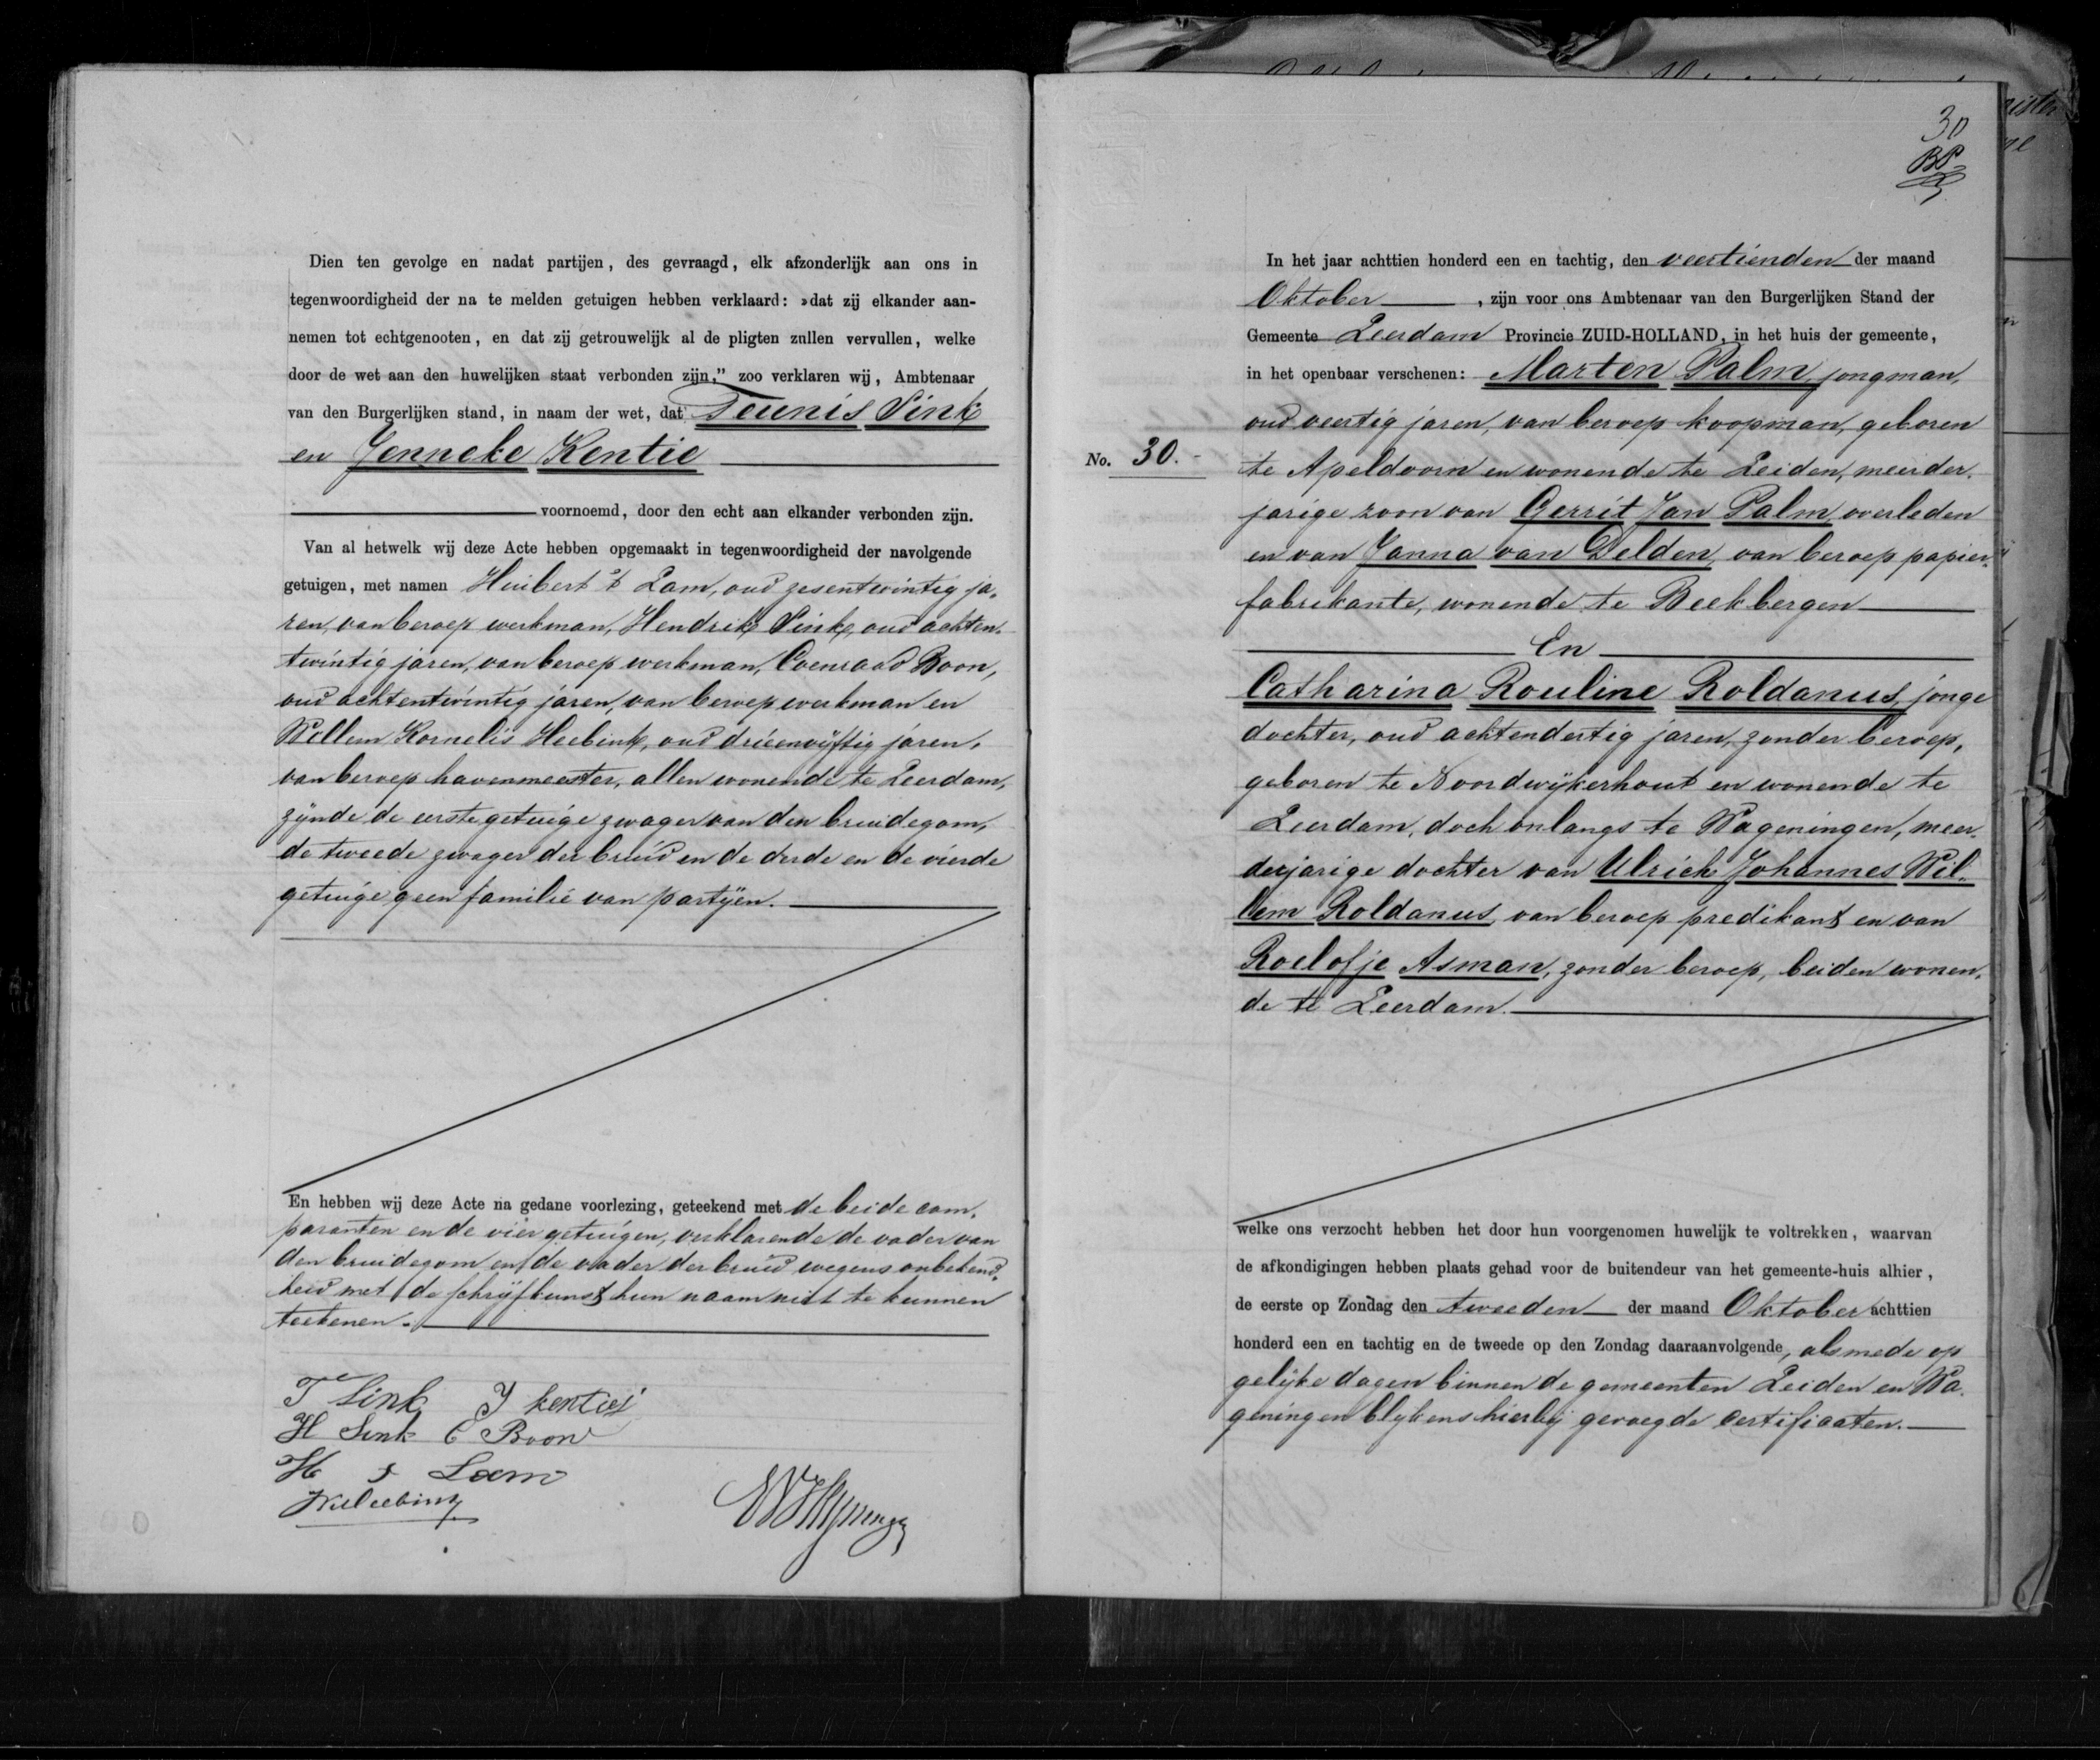 Dien ten gevolge en nadat partijen, des gevraagd, elk afzonderlijk aan ons in
tegenwoordigheid der na te melden getuigen hebben verklaard: »dat zij elkander aan-
nemen tot echtgenooten, en dat zij getrouwelijk al de pligten zullen vervullen, welke
door de wet aan den huwelijken staat verbonden zijn," zoo verklaren wij, Ambtenaar
van den Burgerlijken stand, in naam der wet, dat Teunis Sink
en Jenneke Kentie
voornoemd, door den echt aan elkander verbonden zijn.
Van al hetwelk wij deze Acte hebben opgemaakt in tegenwoordigheid der navolgende
getuigen, met namen Huibert 't Lam, oud zesentwintig ja-
ren, van beroep werkman, Hendrik Sink, oud achten-
twintig jaren, van beroep werkman, Coenraad Boon,
oud achtentwintig jaren, van beroep werkman en
Willem Kornelis Heebink, oud drieenvijftig jaren,
van beroep havenmeester, allen wonende te Leerdam,
zijnde de eerste getuige zwager van den bruidegom,
de tweede zwager der bruid en de derde en de vierde
getuige geen familie van partijen.
En hebben wij deze Acte na gedane voorlezing, geteekend met de beide com-
paranten en de vier getuigen, verklarende de vader van
den bruidegom en de vader der bruid wegens onbekend-
heid met de schrijfkunst hun naam niet te kunnen
teekenen.
T Sink J kentiej
H Sink C Boon
H t Lam
WKHeebink
30
In het jaar achttien honderd een en tachtig, den veertienden der maand
Oktober, zijn voor ons Ambtenaar van den Burgerlijken Stand der
Gemeente Leerdam Provincie ZUID-HOLLAND, in het huis der gemeente,
in het openbaar verschenen: Marten Palm, jongman,
oud veertig jaren, van beroep koopman, geboren
No. 30.
te Apeldoorn en wonende te Leiden, meerder-
jarige zoon van Gerrit Jan Palm, overleden
en van Janna van Delden, van beroep papier-
fabrikante, wonende te Beekbergen
En
Catharina Rouline Roldanus, jonge
dochter, oud achtendertig jaren, zonder beroep,
geboren te Noordwijkerhout en wonende te
Leerdam, doch onlangs te Wageningen, meer-
derjarige dochter van Ulrich Johannes Wil-
lem Roldanus, van beroep predikant en van
Roelofje Asman, zonder beroep, beiden wonen-
de te Leerdam.
welke ons verzocht hebben het door hun voorgenomen huwelijk te voltrekken, waarvan
de afkondigingen hebben plaats gehad voor de buitendeur van het gemeente-huis alhier,
de eerste op Zondag den tweeden der maand Oktober achttien
honderd een en tachtig en de tweede op den Zondag daaraanvolgende, alsmede op
gelijke dagen binnen de gemeenten Leiden en Wa-
geningen blijkens hierbij gevoegde certificaten.